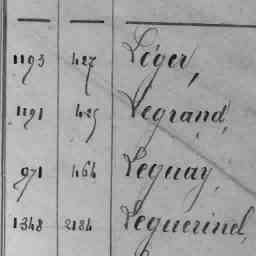 1193 427 Léger,
1191 425 Legrand,
971 464 Leguay,
1348 2184 Leguerinel,